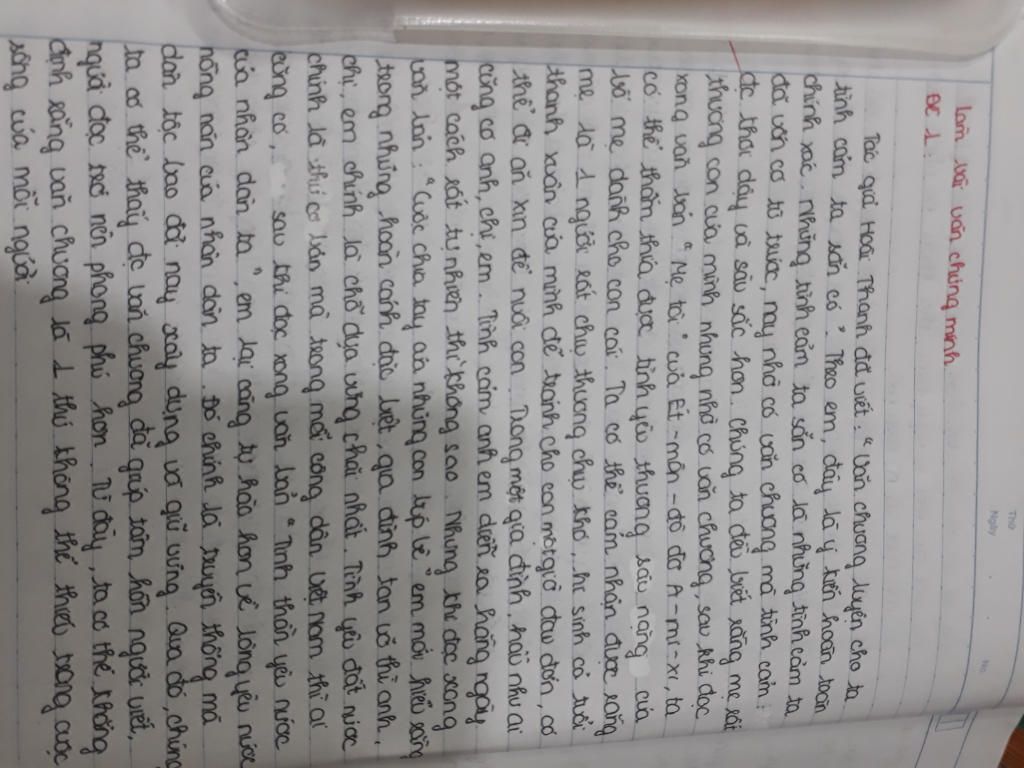 Thứ
Ngày
No.
Làm bài văn chứng minh
ĐC 1:
Tác giả Hoài Thanh đã viết: "Văn chương luyện cho ta
tình cảm ta sẵn có". Theo em, đây là ý kiến hoàn toàn
chính xác. Những tình cảm ta sẵn có là những tình cảm ta
đã vốn có từ trước, nay nhờ có văn chương mà tình cảm
đc khơi dậy và sâu sắc hơn. Chúng ta đều biết rằng mẹ rất
thương con của mình nhưng nhờ có văn chương, sau khi đọc
xong văn bản "Mẹ tôi" của Et-môn-đô đơ A-mi-xi, ta
có thể thấm thía được tình yêu thương sâu nặng của
bố mẹ dành cho con cái. Ta có thể cảm nhận được rằng
mẹ là 1 người rất chịu thương chịu khó, hi sinh cả tuổi
thanh xuân của mình để tránh cho con một giờ đau đớn, có
thể đi ăn xin để nuôi con. Trong một gia đình, hầu như ai
cũng có anh, chị, em. Tình cảm anh em diễn ra hằng ngày
một cách rất tự nhiên thì không sao. Nhưng khi đọc xong
văn bản: "Cuộc chia tay của những con búp bê" em mới hiểu rằng
trong những hoàn cảnh đặc biệt, gia đình tan vỡ thì anh,
chị, em chính là chỗ dựa vững chãi nhất. Tình yêu đất nước
chính là thứ cơ bản mà trong mỗi công dân Việt Nam thì ai
cũng có, sau khi đọc xong văn bản "Tinh thần yêu nước
của nhân dân ta", em lại càng tự hào hơn về lòng yêu nước
nồng nàn của nhân dân ta. Đó chính là truyền thống mà
dân tộc bao đời nay xây dựng và giữ vững. Qua đó, chúng
ta có thể thấy đc văn chương đã giúp tâm hồn người viết,
người đọc trở nên phong phú hơn. Từ đây, ta có thể khẳng
định rằng văn chương là 1 thứ không thể thiếu trong cuộc
sống của mỗi người.